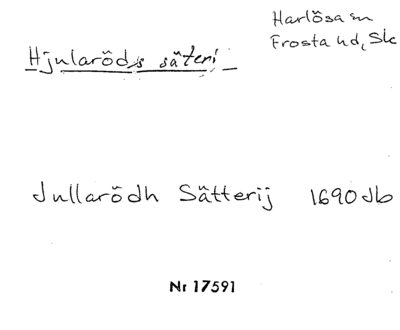 Harlösa sn
Frosta hd, Sk
Hjularöds säteri
Jullarödh Sätterij 1690 Jb
Nr 17591